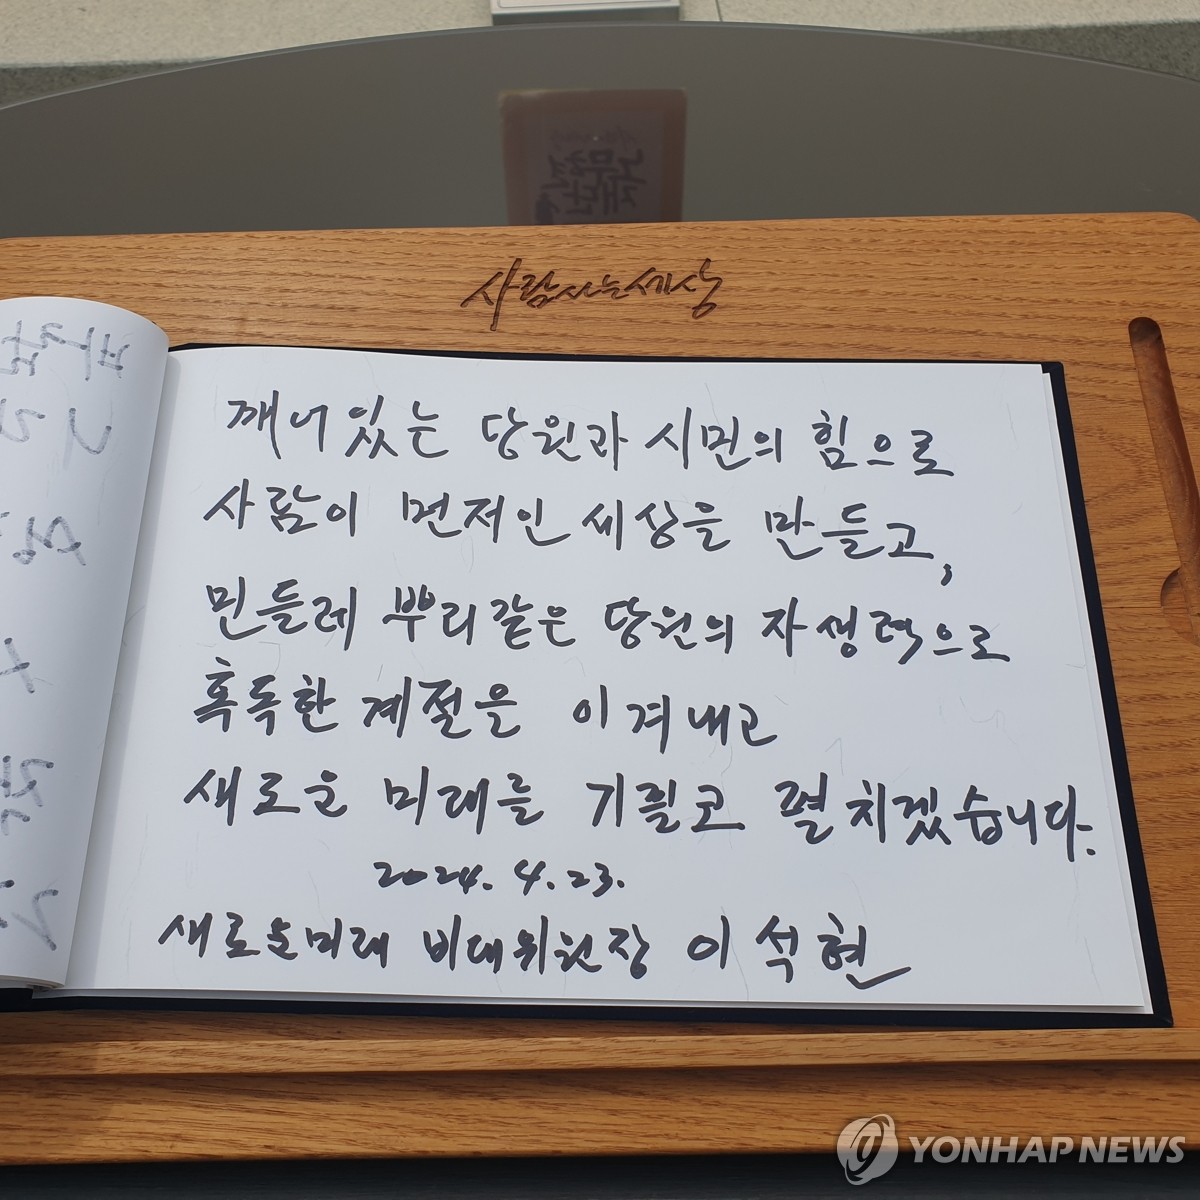 사람사는세상
깨어있는 당원과 시민의 힘으로
사람이 먼저인 세상을 만들고,
민들레 뿌리같은 당원의 자생력으로
혹독한 계절을 이겨내고
새로운 미래를 기필코 펼치겠습니다.
2024. 4. 23.
새로운미래 비대위원장 이석현
YONHAP NEWS